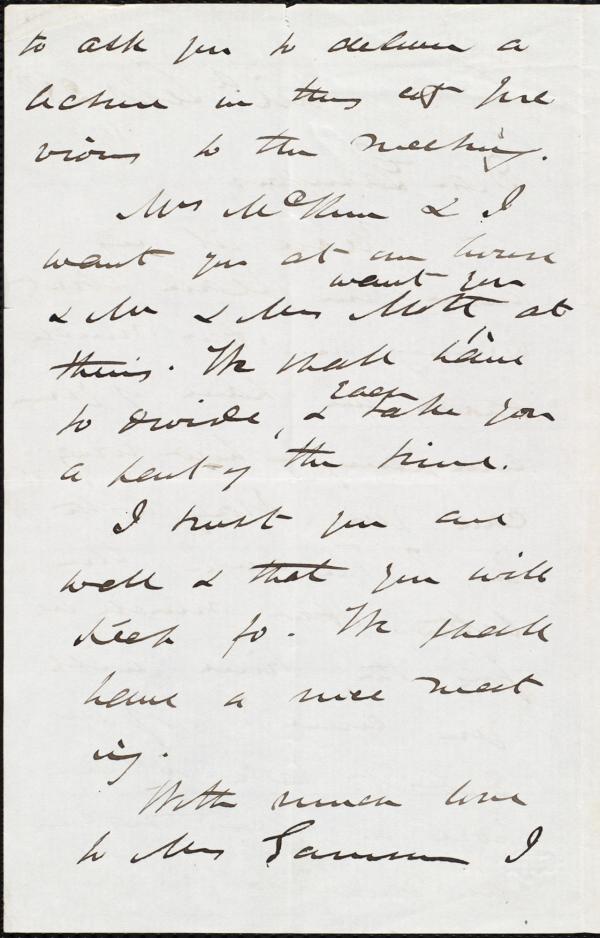 to ask you to deliver a
lecture in this city pre
vious to the meeting.
Mrs McKim & I
want you at our house
want you
& Mr & Mrs Mott at
theirs. We shall have
each
to divide, & take you
a part of the time.
I trust you are
well & that you will
keep so. We shall
have a nice meet
ing.
With much love
to Mrs Garrison I